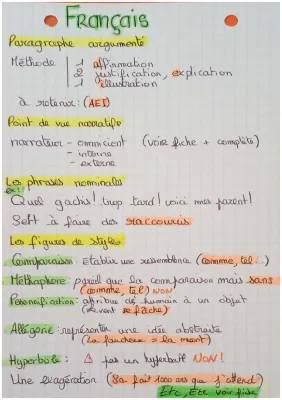 Français
Paragraphe argumenté
Méthode 1 affirmation
2 justification, explication
1 illustration
à retenir: (AEI)
Point de vue narratif
narrateur - omniscient (voir fiche + complète)
- interne
- externe
Les phrases nominales
ex:
Quel gachis! trop tard! voici mes parent!
Sert à faire des raccourcis
Les figures de styles
Comparaison: établir une ressemblance (comme, tel...)
Métaphore: pareil que la comparaison mais sans
(comme, tel) NON!
Personnification: attribue de humain à un objet
(le vent se fâche)
Allégorie: représenter une idée abstraite
(la faucheuse = la mort)
Hyperbole: pas un hyperbate NON!
Une exagération (Sa fait 1000 ans que j'attend)
Etc, Etc voir fiche